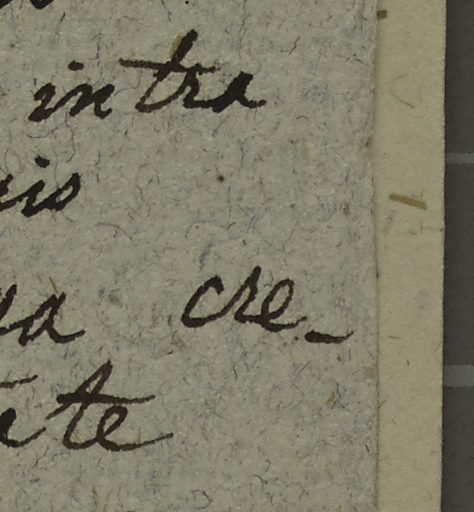 intra
is
a cre-
te